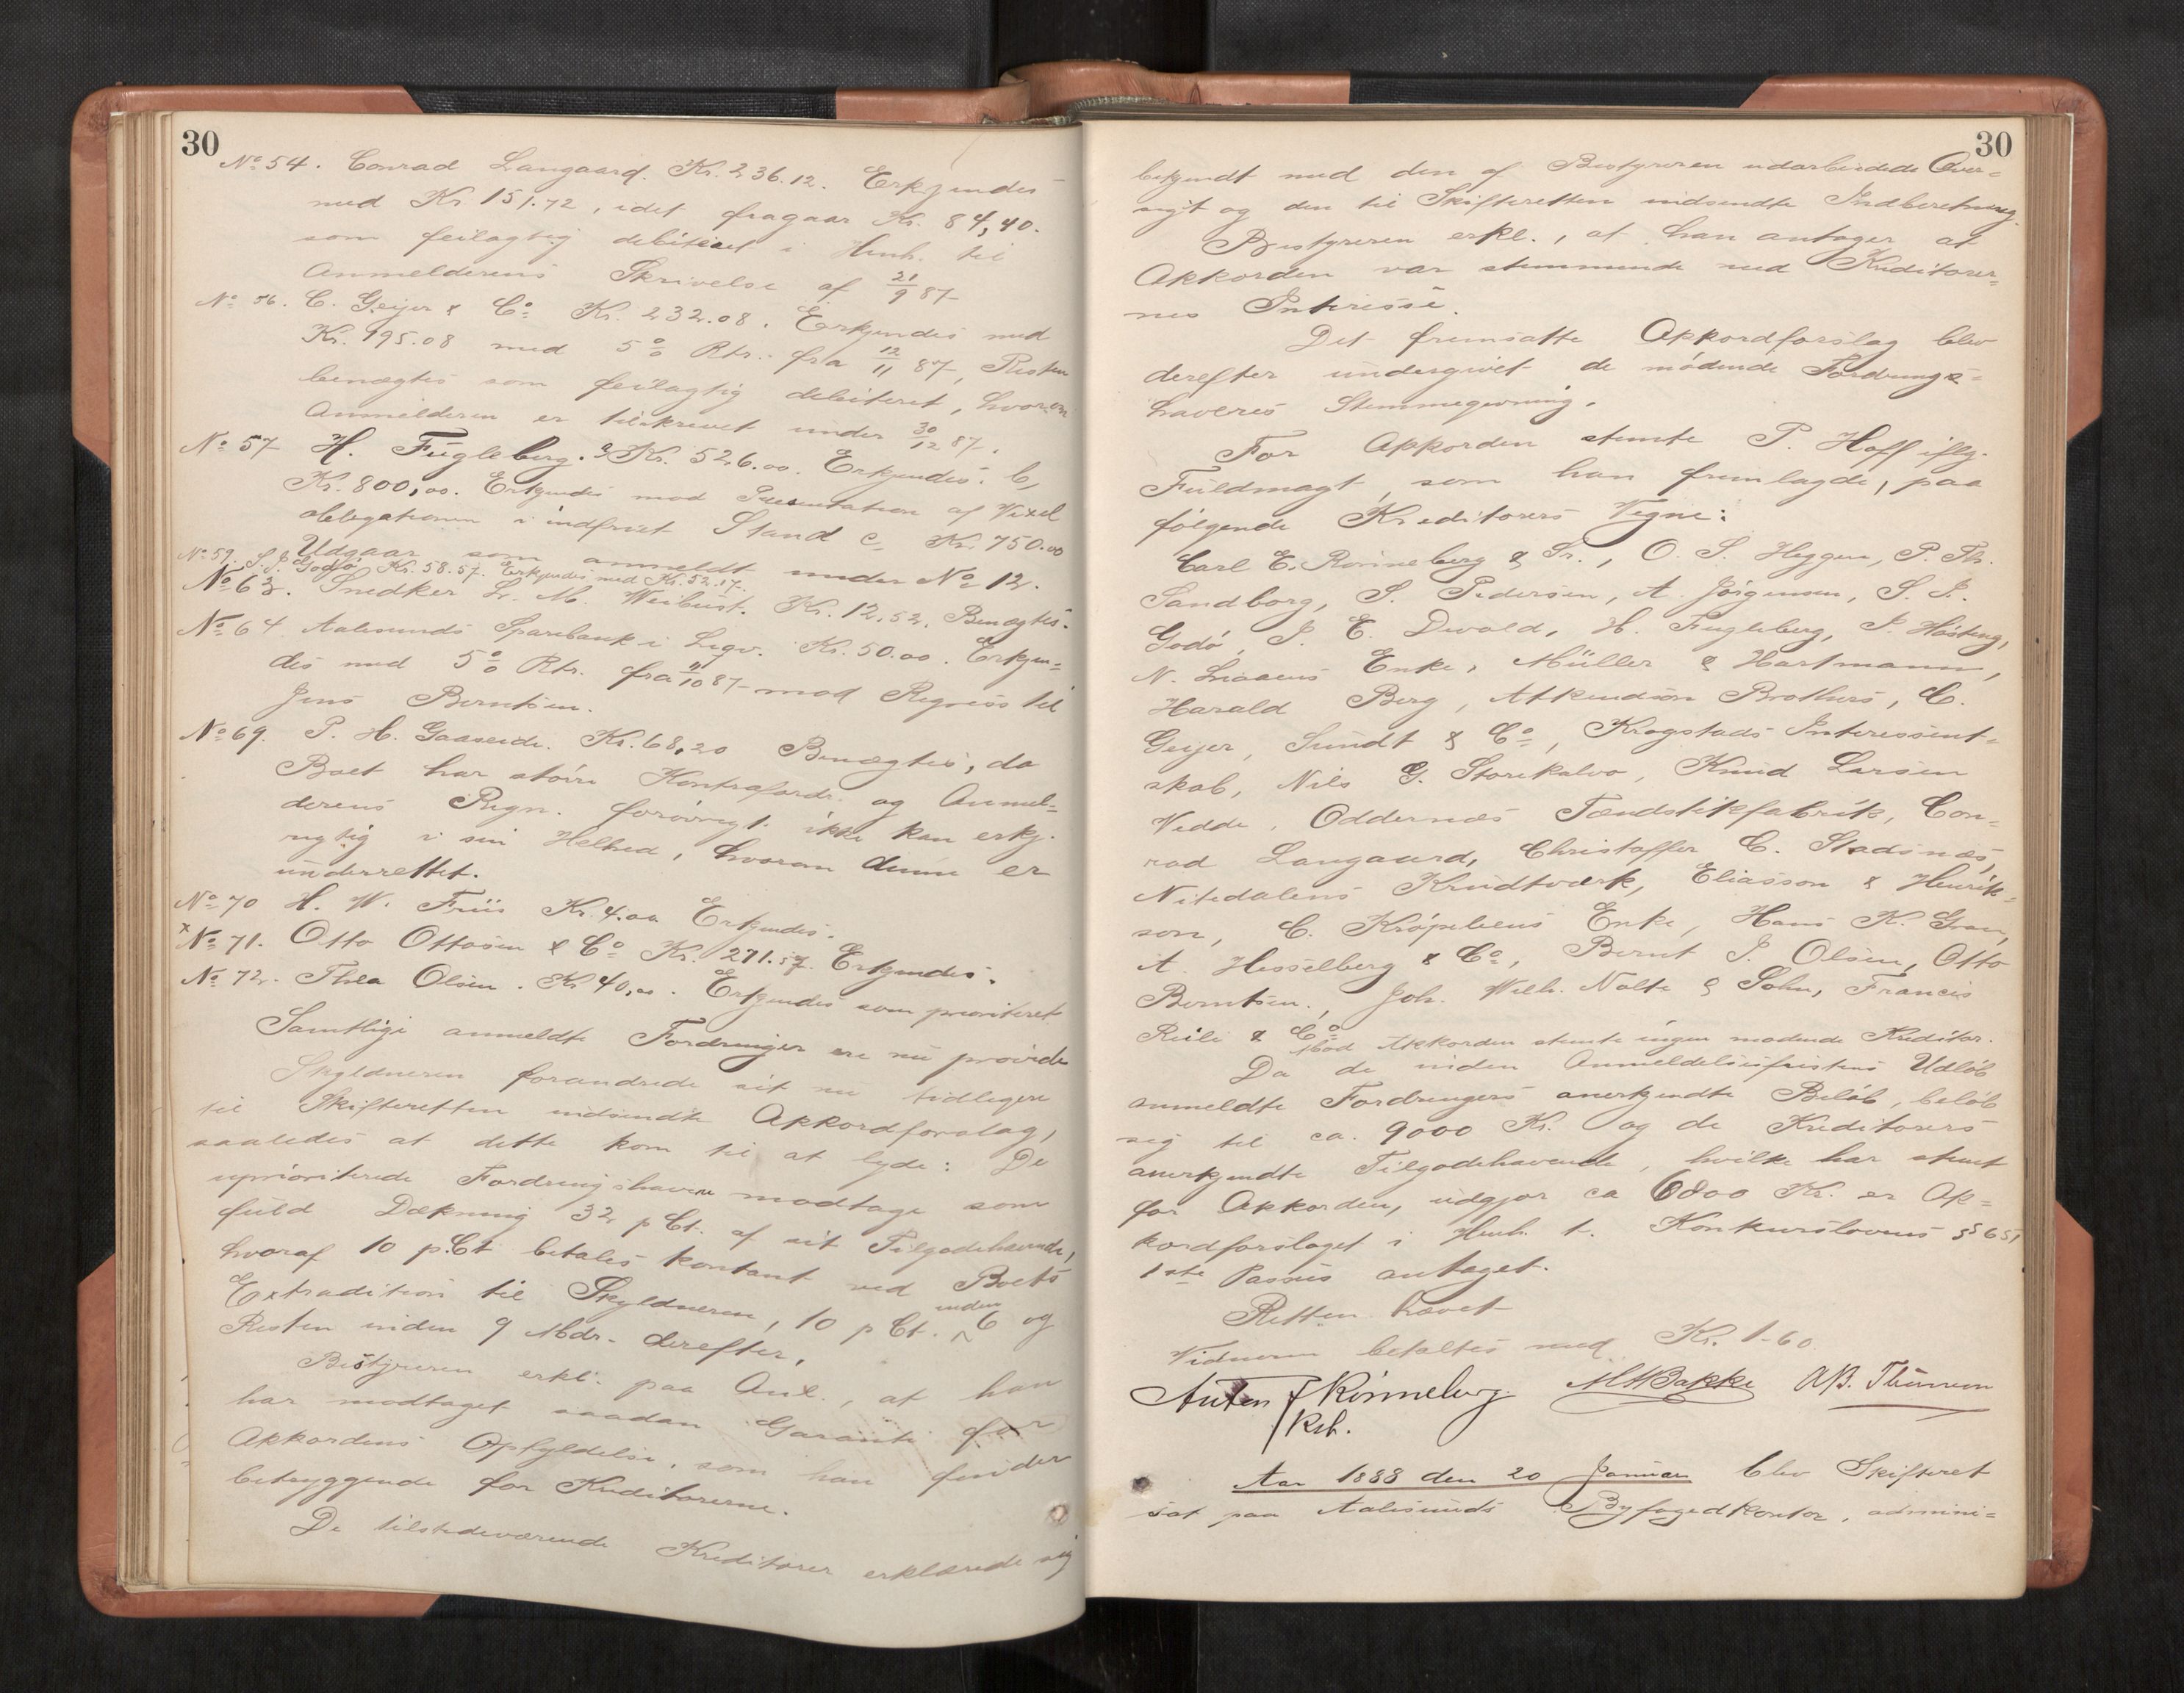 30
No 54. Conrad Langaard. Kr. 236.12. Erkjendes
med Kr. 151.72, idet fragaar Kr. 84,40.
som feilagtig debiteret i Henh. til
Anmelderens Skrivelse af 21/9 87
No 56. C. Geijer & Co Kr. 232.08. Erkjendes med
Kr. 195.08 med 5% Rtr. fra 12/11 87, Resten
benægtes som feilagtig debiteret, hvorom
Anmelderen er tilskrevet under 30/12 87.
No 57 H. Fugleberg. a, Kr. 526.00. Erkjendes. b,
Kr. 800,00. Erkjendes mod Præsentation af Vexel
obligationen i indfriet Stand c, Kr. 750.00
Udgaar som anmeldt under No 12.
No 59. S. J. Godø Kr. 58.57. Erkjendes med Kr. 52.17.
No 63. Snedker L. M. Weibust. Kr. 12.52. Benægtes.
No 64 Aalesunds Sparebank i Liqv. Kr. 50.00. Erkjen-
des med 5% Rtr. fra 11/10 87 mod Regress til
Jens Berntsen.
No 69. P. H. Gaaseide. Kr. 68,20 Benægtes, da
Boet har større Kontrafordr. og Anmel-
derens Regn. forøvrigt ikke kan erkj.
rigtig i sin Helhed, hvorom denne er
underrettet.
No 70 H. W. Friis Kr. 4.00 Erkjendes.
x No 71. Otto Ottosen & Co Kr. 271.57. Erkjendes.
No 72. Thea Olsen. Kr 40,00. Erkjendes som prioriteret
Samtlige anmeldte Fordringer ere nu prøvede
Skyldneren forandrede sit nu tidligere
til Skifteretten indsendte Akkordforslag,
saaledes at dette kom til at lyde: De
uprioriterede Fordringshavere modtage som
fuld Dækning 32 p Ct. af sit Tilgodehavende,
hvoraf 10 p.Ct betales kontant ved Boets
Extradition til Skyldneren, 10 p Ct. inden 6 og
Resten inden 9 Mdr. derefter.
Bestyreren erkl. paa Anl., at han
har modtaget saadan Garanti for
Akkordens Opfyldelse, som han finder
betryggende for Kreditorerne.
De tilstedeværende Kreditorer erklærede sig
30
bekjendt med den af Bestyreren udarbeidede Over-
sigt og den til Skifteretten indsendte Indberetning.
Bestyreren erkl., at han antager at
Akkorden var stemmende med Kreditorer-
nes Interesse.
Det fremsatte Akkordforslag blev
derefter undergivet de mødende Fordrings-
haveres Stemmegivning.
For Akkorden stemte P. Hoff iflg.
Fuldmagt, som han fremlagde, paa
følgende Kreditorers Vegne:
Carl E. Rønneberg & Sr., O. S. Heggen, P. Th.
Sandborg, S. Pedersen, A. Jørgensen, S. J.
Godø, J. E. Devold, H. Fugleberg, P. Høsteng,
N. Liaaens Enke, Müller & Hartmann,
Harald Berg, Atkendson Brothers, C.
Geijer, Sundt & Co, Krogstads Interessent-
skab, Nils G. Storekalvo, Knud Larsen
Vedde, Oddernæs Tændstikfabrik, Con-
rad Langaard, Christoffer C. Stadsnæs,
Nitedalens Krudtværk, Eliasson & Henrik-
son, C. Krøpeliens Enke, Hans K. Gran,
A. Hesselberg & Co, Bernt J. Olsen, Otto
Berntsen, Joh. Wilh. Nolte & Sohn, Francis
Reile & Co
Mod Akkorden stemte ingen mødende Kreditor.
Da de inden Anmeldelsesfristens Udløb
anmeldte Fordringers anerkjendte Beløb, beløb
sig til ca. 9000 Kr. og de Kreditorers
anerkjendte Tilgodehavende, hvilke har stemt
for Akkorden, udgjør ca 6800 Kr. er Ak-
kordforslaget i Henh. t. Konkurslovens § 65,
1ste Passus antaget.
Retten hævet
Vidnerne betaltes med Kr. 1-60.
Anton Rønneberg. M Bakke A.B. Thunem
Kst.
Aar 1888 den 20 Januar blev Skifteret
sat paa Aalesunds Byfogedkontor, admini-